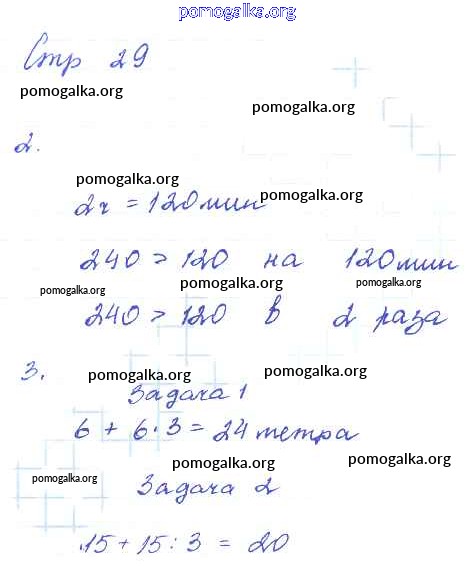 pomogalka.org
Стр 29
pomogalka.org pomogalka.org
2.
pomogalka.org pomogalka.org
2ч = 120мин
240 > 120 на 120мин
pomogalka.org pomogalka.org pomogalka.org
240 > 120 в 2 раза
3. pomogalka.org pomogalka.org
Задача 1
6 + 6·3 = 24 метра
pomogalka.org pomogalka.org pomogalka.org
Задача 2
15 + 15 : 3 = 20